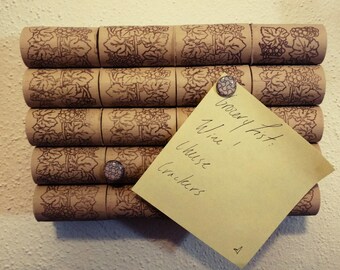 Grocery List:
Wine!
Cheese
Crackers